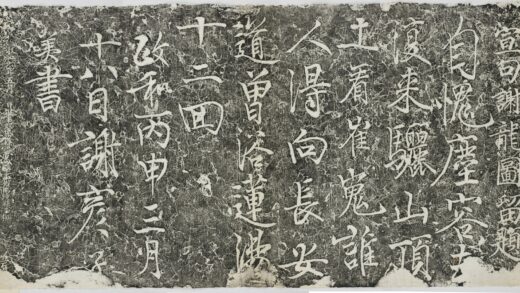 謝龍圖留題
自愧塵容去
復来驪山頂
上看崔嵬誰
人得向長安
道曾浴蓮湯
十二回
政和丙申三月
十六日謝彦
書